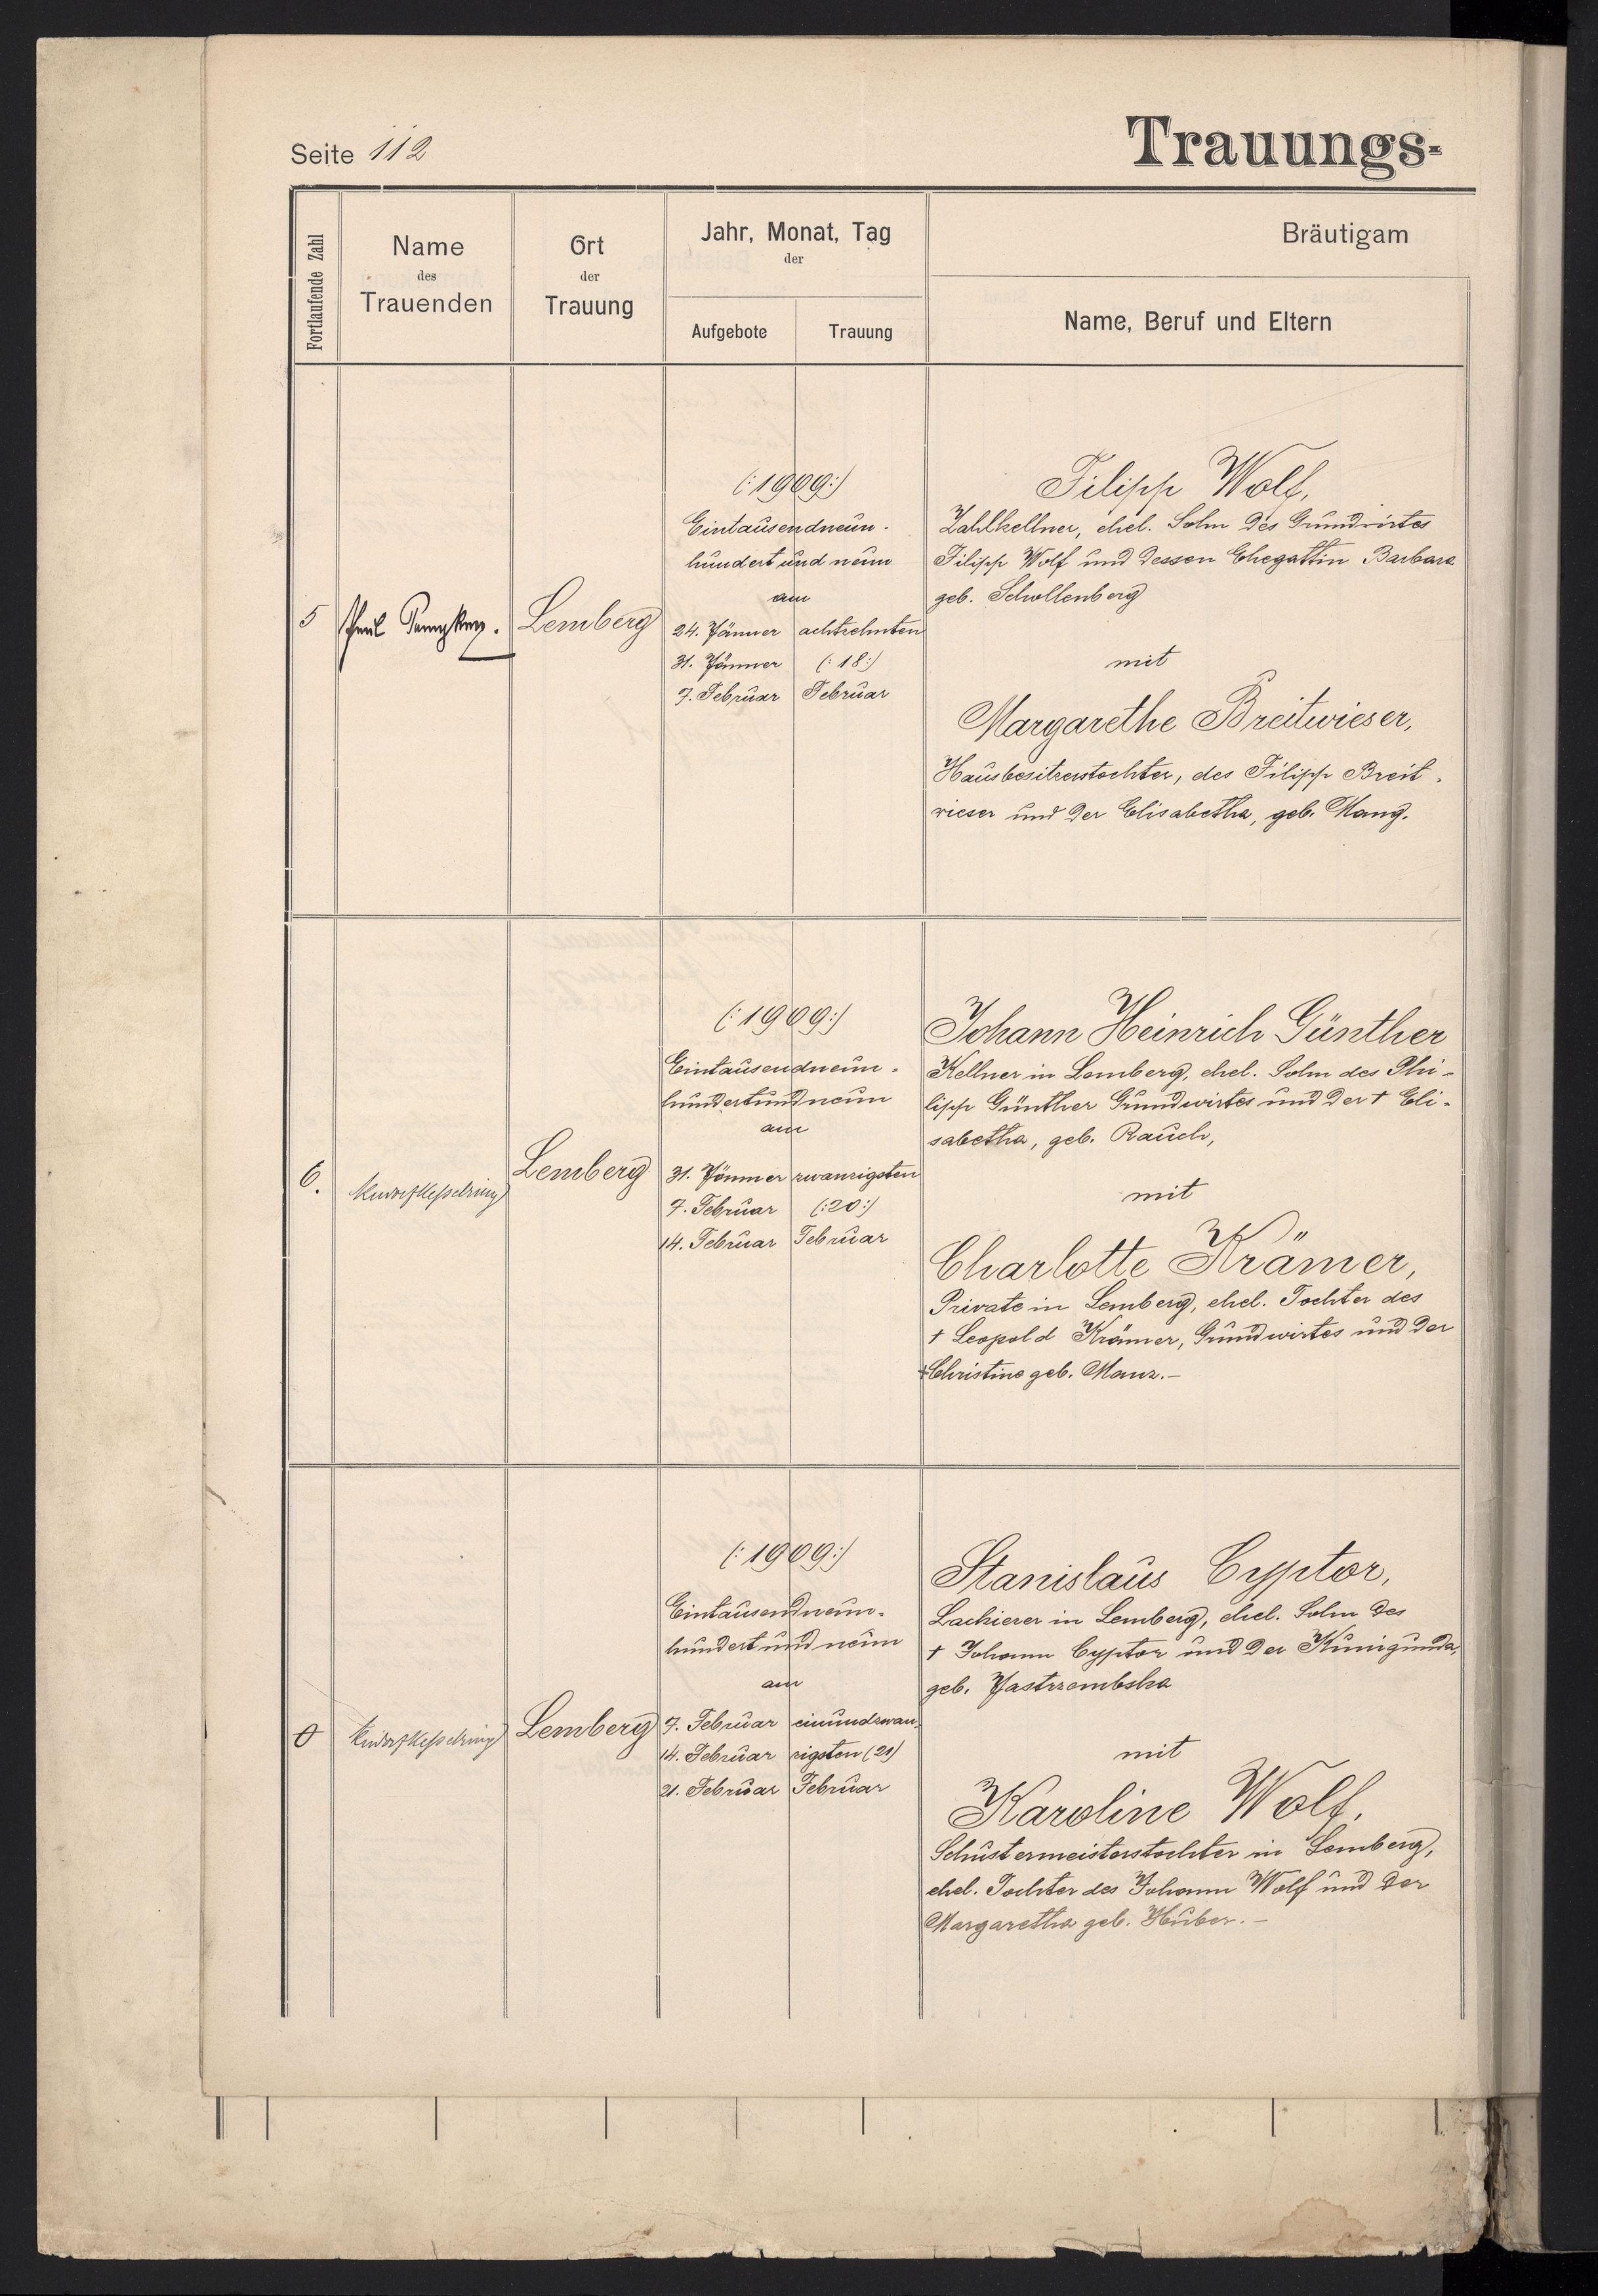 Seite 112
Trauungs-
Fortlaufende Zahl
Name
des
Trauenden
Ort
der
Trauung
Jahr, Monat, Tag
der
Aufgebote
Trauung
Bräutigam
Name, Beruf und Eltern
5
Paul
Lemberg
(:1909:)
Eintausendneun-
hundert und neun
am
24. Jänner
31. Jänner
7. Februar
achtzehnten
(:18:)
Februar
Filipp Wolf,
Zahlkellner, ehel. Sohn des Grundwirtes
Filipp Wolf und dessen Ehegattin Barbara
geb. Schollenberg
mit
Margarethe Breitwieser,
Hausbesitzerstochter, des Filipp Breit-
wieser und der Elisabetha, geb. Mang.
6.
Kesselring
Lemberg
(:1909:)
Eintausendneun-
hundertundneun
am
31. Jänner
7. Februar
14. Februar
zwanzigsten
(:20:)
Februar
Johann Heinrich Günther
Kellner in Lemberg, ehel. Sohn des Phi-
lipp Günther Grundwirtes und der † Eli-
sabetha, geb. Rauch,
mit
Charlotte Krämer,
Private in Lemberg, ehel. Tochter des
† Leopold Krämer, Grundwirtes und der
†Christine geb. Manz.-
0
Kesselring
Lemberg
(:1909:)
Eintausendneun-
hundert und neun
am
7. Februar
14. Februar
21. Februar
einundzwan-
zigsten (21)
Februar
Stanislaus Cyptor,
Lackierer in Lemberg, ehel. Sohn des
† Johann Cyptor und der Kunigunda,
geb. Jastrzembska
mit
Karoline Wolf,
Schustermeisterstochter in Lemberg,
ehel. Tochter des Johann Wolf und der
Margaretha geb. Huber.-